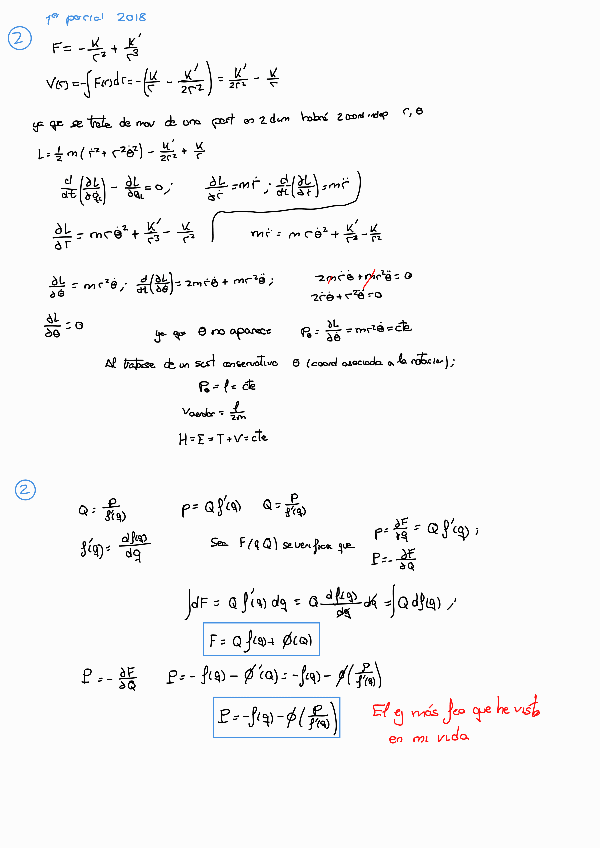 1er parcial 2018
2
F = -K/r² + K'/r³
V(r) = -∫F(r)dr = -(K/r - K'/2r²) = K'/2r² - K/r
ya que se trate de mov de una part en 2 dim habrá 2 coord indep r, θ
L = 1/2 m(ṙ² + r²θ̇²) - K'/2r² + K/r
d/dt(∂L/∂q̇ᵢ) - ∂L/∂qᵢ = 0; ∂L/∂ṙ = mṙ; d/dt(∂L/∂ṙ) = mr̈
∂L/∂r = mrθ̇² + K'/r³ - K/r² mr̈ = mrθ̇² + K'/r³ - K/r²
∂L/∂θ̇ = mr²θ̇; d/dt(∂L/∂θ̇) = 2mrṙθ̇ + mr²θ̈; 2mrṙθ̇ + mr²θ̈ = 0
2ṙθ̇ + r²θ̈ = 0
∂L/∂θ = 0 ya que θ no aparece Pθ = ∂L/∂θ̇ = mr²θ̇ = cte
Al tratarse de un sist conservativo θ (coord asociada a la rotación);
Pθ = l = cte
Vareolar = l/2m
H = E = T + V = cte
2
Q = P/f'(q) p = Q f'(q) Q = P/f'(q)
f'(q) = df(q)/dq Sea F(q Q) se verifica que p = ∂F/∂q = Q f'(q);
P = -∂F/∂Q
∫dF = Q f'(q) dq = Q df(q)/dq dq = ∫Q df(q);
F = Q f(q) + φ(Q)
P = -∂F/∂Q P = -f(q) - φ'(Q) = -f(q) - φ(P/f'(q))
P = -f(q) - φ(P/f'(q))
El ej más feo que he visto
en mi vida